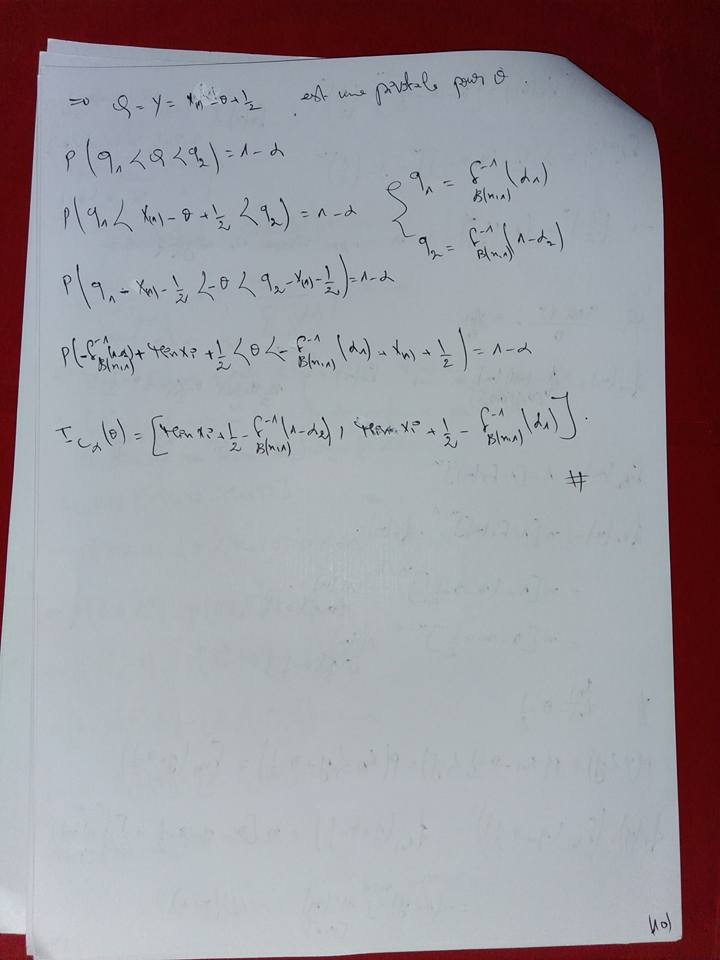 => Q = Y = X(n) - θ + 1/2 est une pivotale pour θ.
P(q₁ < Q < q₂) = 1 - α
P(q₁ < X(n) - θ + 1/2 < q₂) = 1 - α
{ q₁ = f⁻¹ B(n,1) (α₁)
q₂ = f⁻¹ B(n,1) (1 - α₂)
P(q₁ - X(n) - 1/2 < -θ < q₂ - X(n) - 1/2) = 1 - α
+ 1/2 < θ < -f⁻¹ B(n,1) (α₁) + X(n) + 1/2) = 1 - α
I C α (θ) = [ xi + 1/2 - f⁻¹ B(n,1) (1 - α₂), xi + 1/2 - f⁻¹ B(n,1) (α₁)].
#